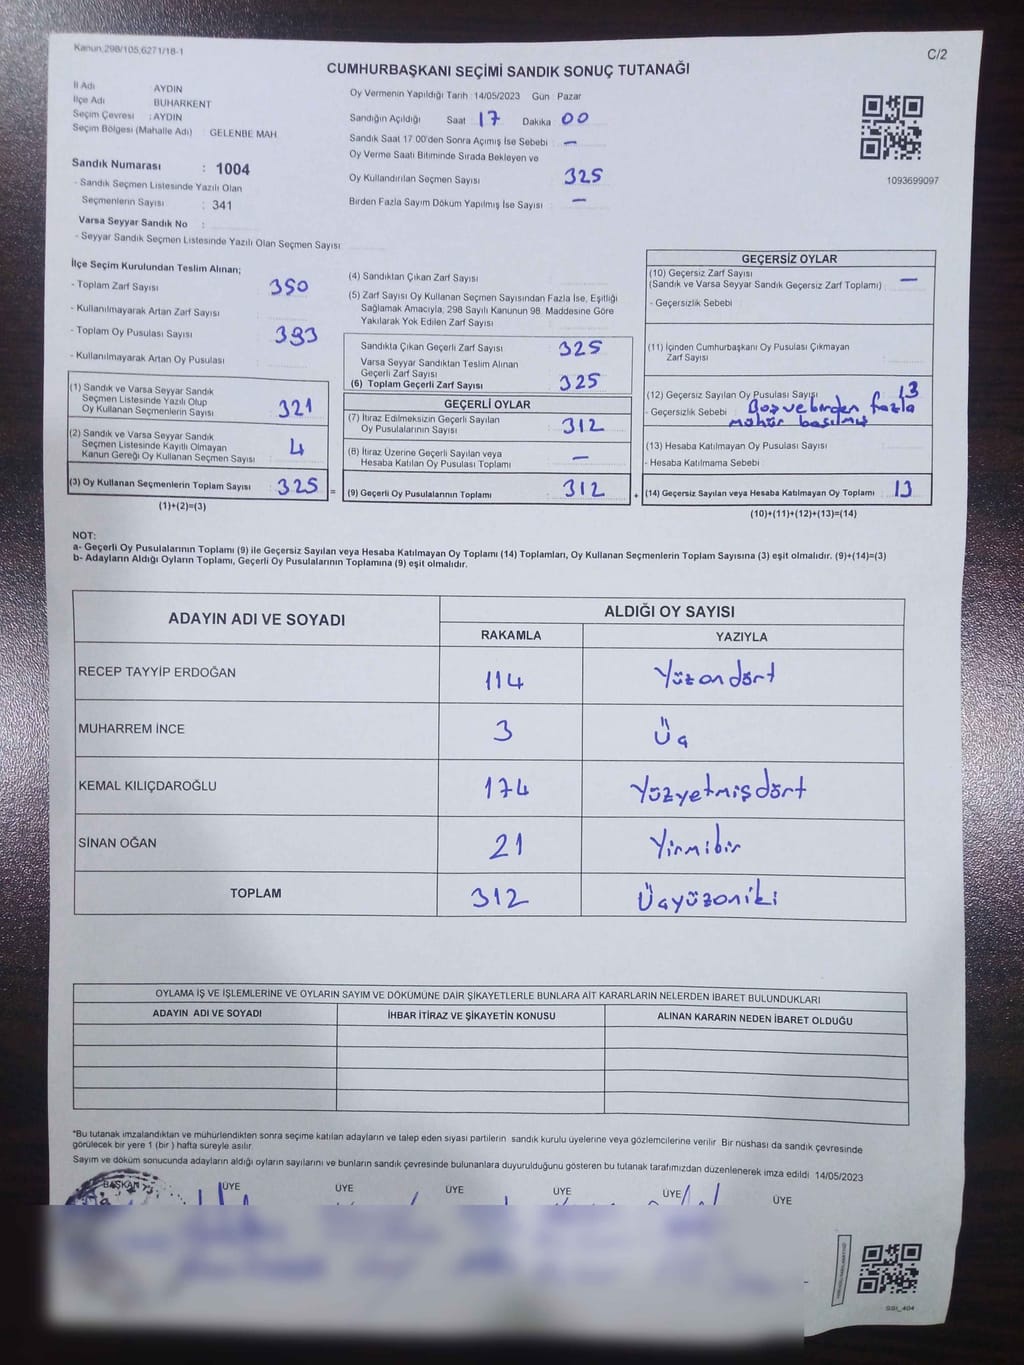 Kanun.298/105,6271/18-1
C/2
CUMHURBAŞKANI SEÇİMİ SANDIK SONUÇ TUTANAĞI
İl Adı AYDIN
İlçe Adı BUHARKENT
Seçim Çevresi : AYDIN
Seçim Bölgesi (Mahalle Adı) : GELENBE MAH.
Sandık Numarası : 1004
- Sandık Seçmen Listesinde Yazılı Olan
Seçmenlerin Sayısı : 341
Varsa Seyyar Sandık No :
- Seyyar Sandık Seçmen Listesinde Yazılı Olan Seçmen Sayısı:
Oy Vermenin Yapıldığı Tarih :14/05/2023 Gün : Pazar
Sandığın Açıldığı Saat : 17 Dakika : 00
Sandık Saat 17.00'den Sonra Açımış İse Sebebi : –
Oy Verme Saati Bitiminde Sırada Bekleyen ve
Oy Kullandırılan Seçmen Sayısı : 325
Birden Fazla Sayım Döküm Yapılmış İse Sayısı : –
1093699097
İlçe Seçim Kurulundan Teslim Alınan;
- Toplam Zarf Sayısı : 350
- Kullanılmayarak Artan Zarf Sayısı :
- Toplam Oy Pusulası Sayısı : 393
- Kullanılmayarak Artan Oy Pusulası :
(1) Sandık ve Varsa Seyyar Sandık
Seçmen Listesinde Yazılı Olup
Oy Kullanan Seçmenlerin Sayısı : 321
(2) Sandık ve Varsa Seyyar Sandık
Seçmen Listesinde Kayıtlı Olmayan
Kanun Gereği Oy Kullanan Seçmen Sayısı : 4
(3) Oy Kullanan Seçmenlerin Toplam Sayısı : 325 =
(1)+(2)=(3)
(4) Sandıktan Çıkan Zarf Sayısı :
(5) Zarf Sayısı Oy Kullanan Seçmen Sayısından Fazla İse, Eşitliği
Sağlamak Amacıyla, 298 Sayılı Kanunun 98. Maddesine Göre
Yakılarak Yok Edilen Zarf Sayısı :
Sandıkta Çıkan Geçerli Zarf Sayısı : 325
Varsa Seyyar Sandıktan Teslim Alınan
Geçerli Zarf Sayısı :
(6) Toplam Geçerli Zarf Sayısı : 325
GEÇERLİ OYLAR
(7) İtiraz Edilmeksizin Geçerli Sayılan
Oy Pusulalarının Sayısı : 312
(8) İtiraz Üzerine Geçerli Sayılan veya
Hesaba Katılan Oy Pusulası Toplamı : –
(9) Geçerli Oy Pusulalarının Toplamı : 312 +
GEÇERSİZ OYLAR
(10) Geçersiz Zarf Sayısı
(Sandık ve Varsa Seyyar Sandık Geçersiz Zarf Toplamı) : –
- Geçersizlik Sebebi :
(11) İçinden Cumhurbaşkanı Oy Pusulası Çıkmayan
Zarf Sayısı :
(12) Geçersiz Sayılan Oy Pusulası Sayısı : 13
- Geçersizlik Sebebi : Boş ve birden fazla
mühür basılmış
(13) Hesaba Katılmayan Oy Pusulası Sayısı :
- Hesaba Katılmama Sebebi :
(14) Geçersiz Sayılan veya Hesaba Katılmayan Oy Toplamı : 13
(10)+(11)+(12)+(13)=(14)
NOT:
a- Geçerli Oy Pusulalarının Toplamı (9) ile Geçersiz Sayılan veya Hesaba Katılmayan Oy Toplamı (14) Toplamları, Oy Kullanan Seçmenlerin Toplam Sayısına (3) eşit olmalıdır. (9)+(14)=(3)
b- Adayların Aldığı Oyların Toplamı, Geçerli Oy Pusulalarının Toplamına (9) eşit olmalıdır.
ADAYIN ADI VE SOYADI ALDIĞI OY SAYISI
RAKAMLA YAZIYLA
RECEP TAYYİP ERDOĞAN 114 Yüzondört
MUHARREM İNCE 3 Üç
KEMAL KILIÇDAROĞLU 174 Yüzyetmişdört
SİNAN OĞAN 21 Yirmibir
TOPLAM 312 Üçyüzoniki
OYLAMA İŞ VE İŞLEMLERİNE VE OYLARIN SAYIM VE DÖKÜMÜNE DAİR ŞİKAYETLERLE BUNLARA AİT KARARLARIN NELERDEN İBARET BULUNDUKLARI
ADAYIN ADI VE SOYADI İHBAR İTİRAZ VE ŞİKAYETİN KONUSU ALINAN KARARIN NEDEN İBARET OLDUĞU
*Bu tutanak imzalandıktan ve mühürlendikten sonra seçime katılan adayların ve talep eden siyasi partilerin sandık kurulu üyelerine veya gözlemcilerine verilir. Bir nüshası da sandık çevresinde
görülecek bir yere 1 (bir) hafta süreyle asılır.
Sayım ve döküm sonucunda adayların aldığı oyların sayılarını ve bunların sandık çevresinde bulunanlara duyurulduğunu gösteren bu tutanak tarafımızdan düzenlenerek imza edildi. 14/05/2023
BAŞKAN ÜYE ÜYE ÜYE ÜYE ÜYE ÜYE
SSI_404